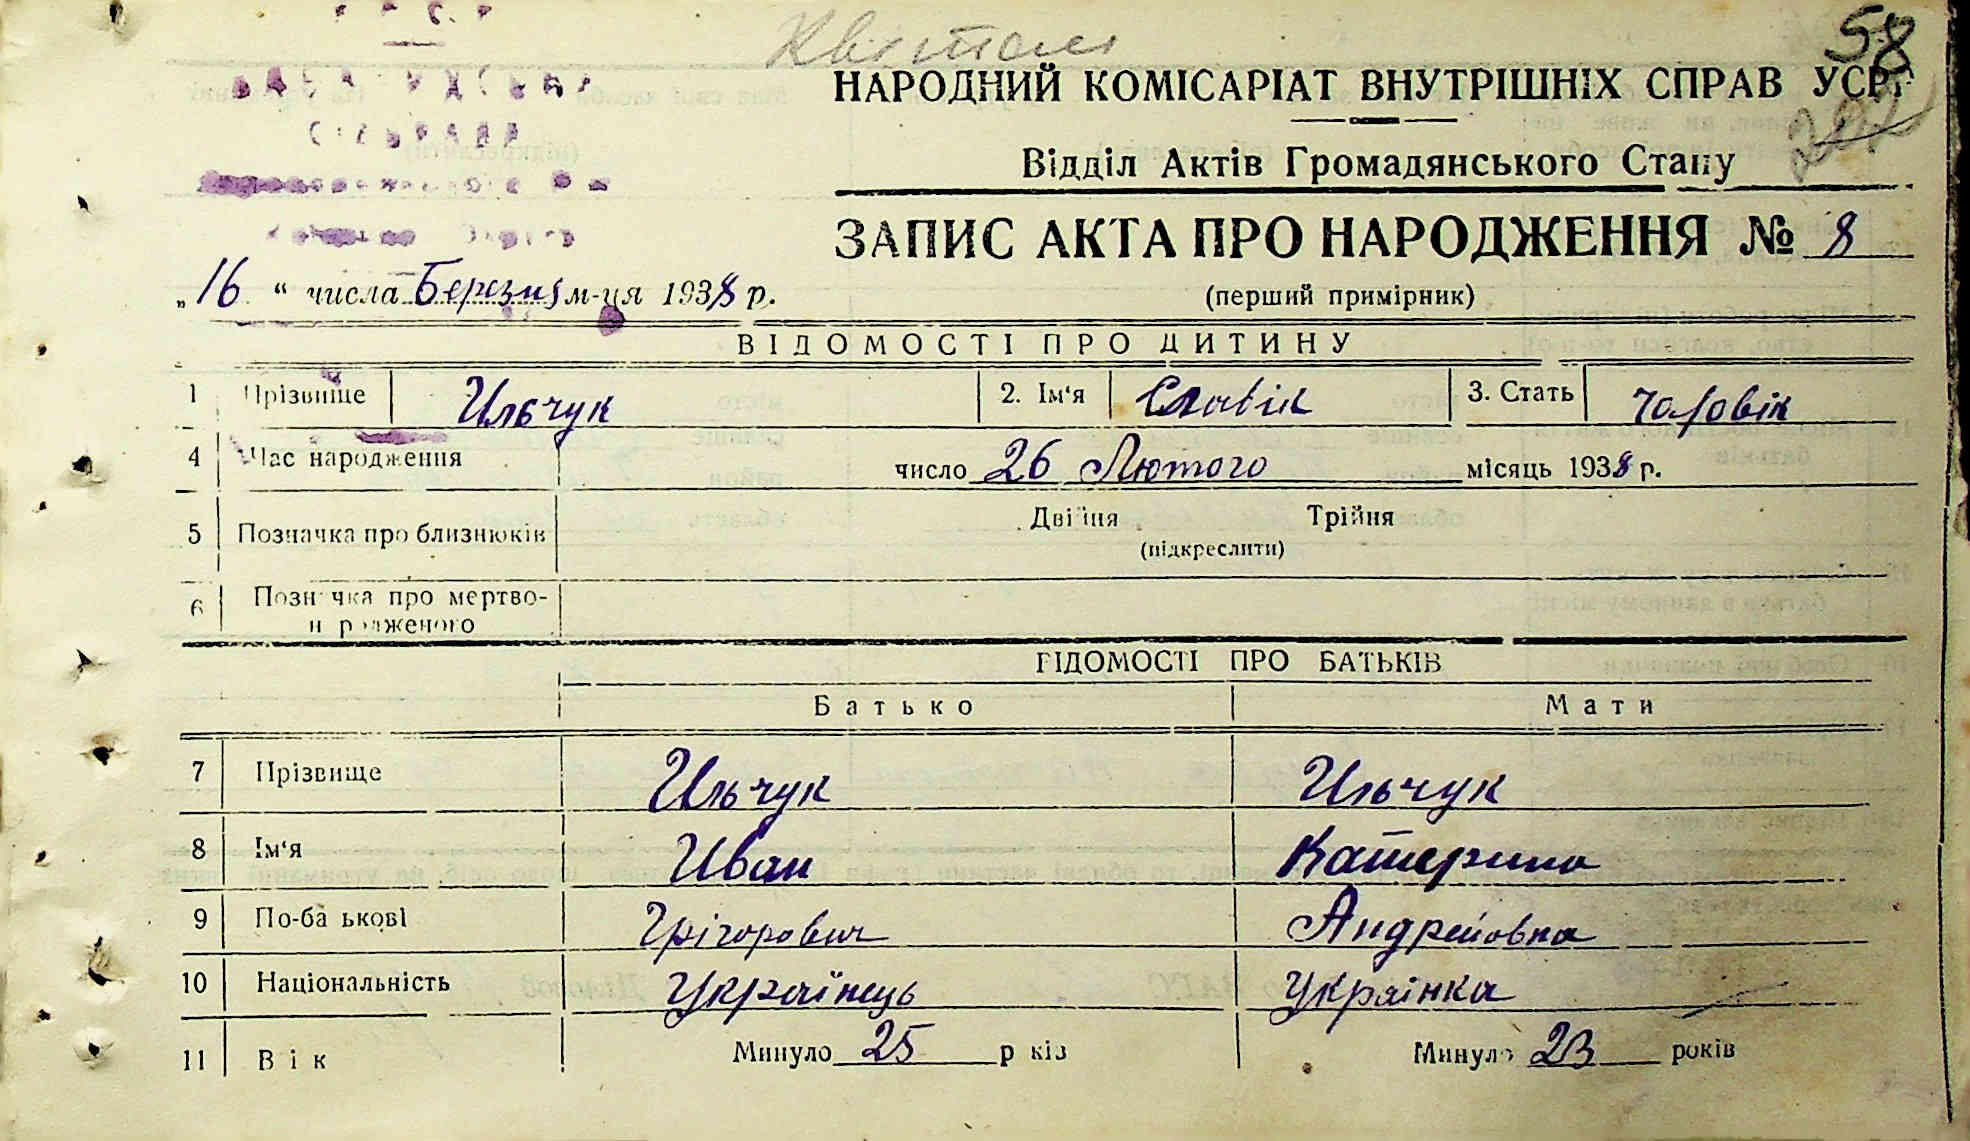 58
НАРОДНИЙ КОМІСАРІАТ ВНУТРІШНІХ СПРАВ УСРР
Відділ Актів Громадянського Стану
ЗАПИС АКТА ПРО НАРОДЖЕННЯ № 8
„16“ числа Березня м-ця 1938 р.
(перший примірник)
ВІДОМОСТІ ПРО ДИТИНУ
1 Прізвище Ильчук 2. Ім'я Славік 3. Стать чоловік
4 Час народження число 26 Лютого місяць 1938 р.
5 Позначка про близнюків Двійня Трійня
(підкреслити)
6 Позначка про мертво-
народженого
ВІДОМОСТІ ПРО БАТЬКІВ
Батько Мати
7 Прізвище Ильчук Ильчук
8 Ім'я Иван Катерина
9 По-батькові Грігорович Андрейовна
10 Національність Українець Украінка
11 Вік Минуло 25 років Минуло 23 років